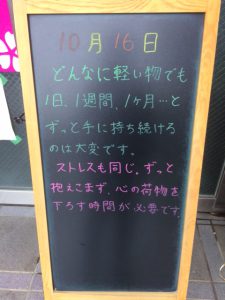 10月16日
どんなに軽い物でも
1日、1週間、1ヶ月…と
ずっと手に持ち続ける
のは大変です。
ストレスも同じ。ずっと
抱えこまず、心の荷物を
下ろす時間が必要です